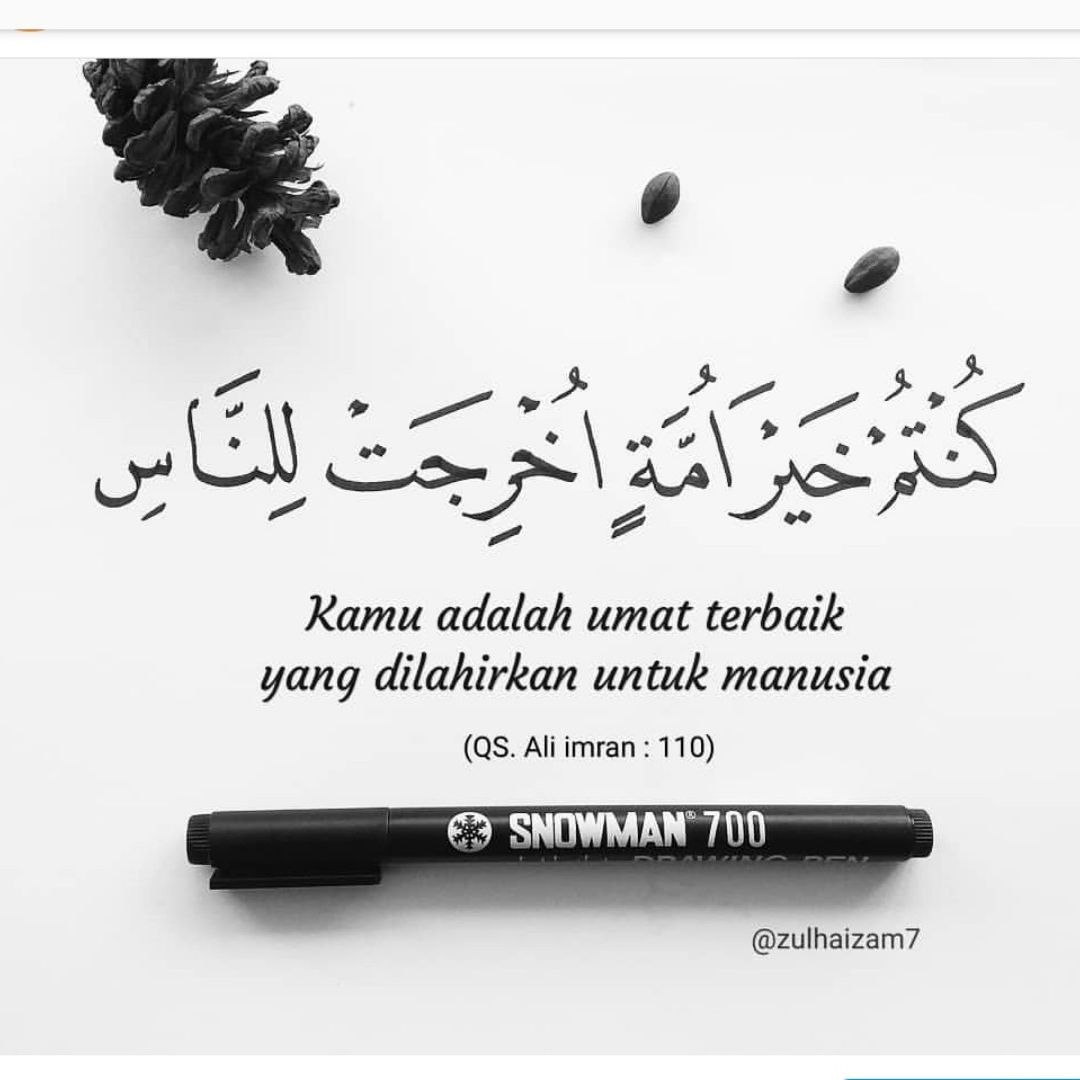 كُنْتُمْ خَيْرَ اُمَّةٍ اُخْرِجَتْ لِلنَّاسِ
Kamu adalah umat terbaik
yang dilahirkan untuk manusia
(QS. Ali imran : 110)
SNOWMAN® 700
DRAWING PEN
@zulhaizam7